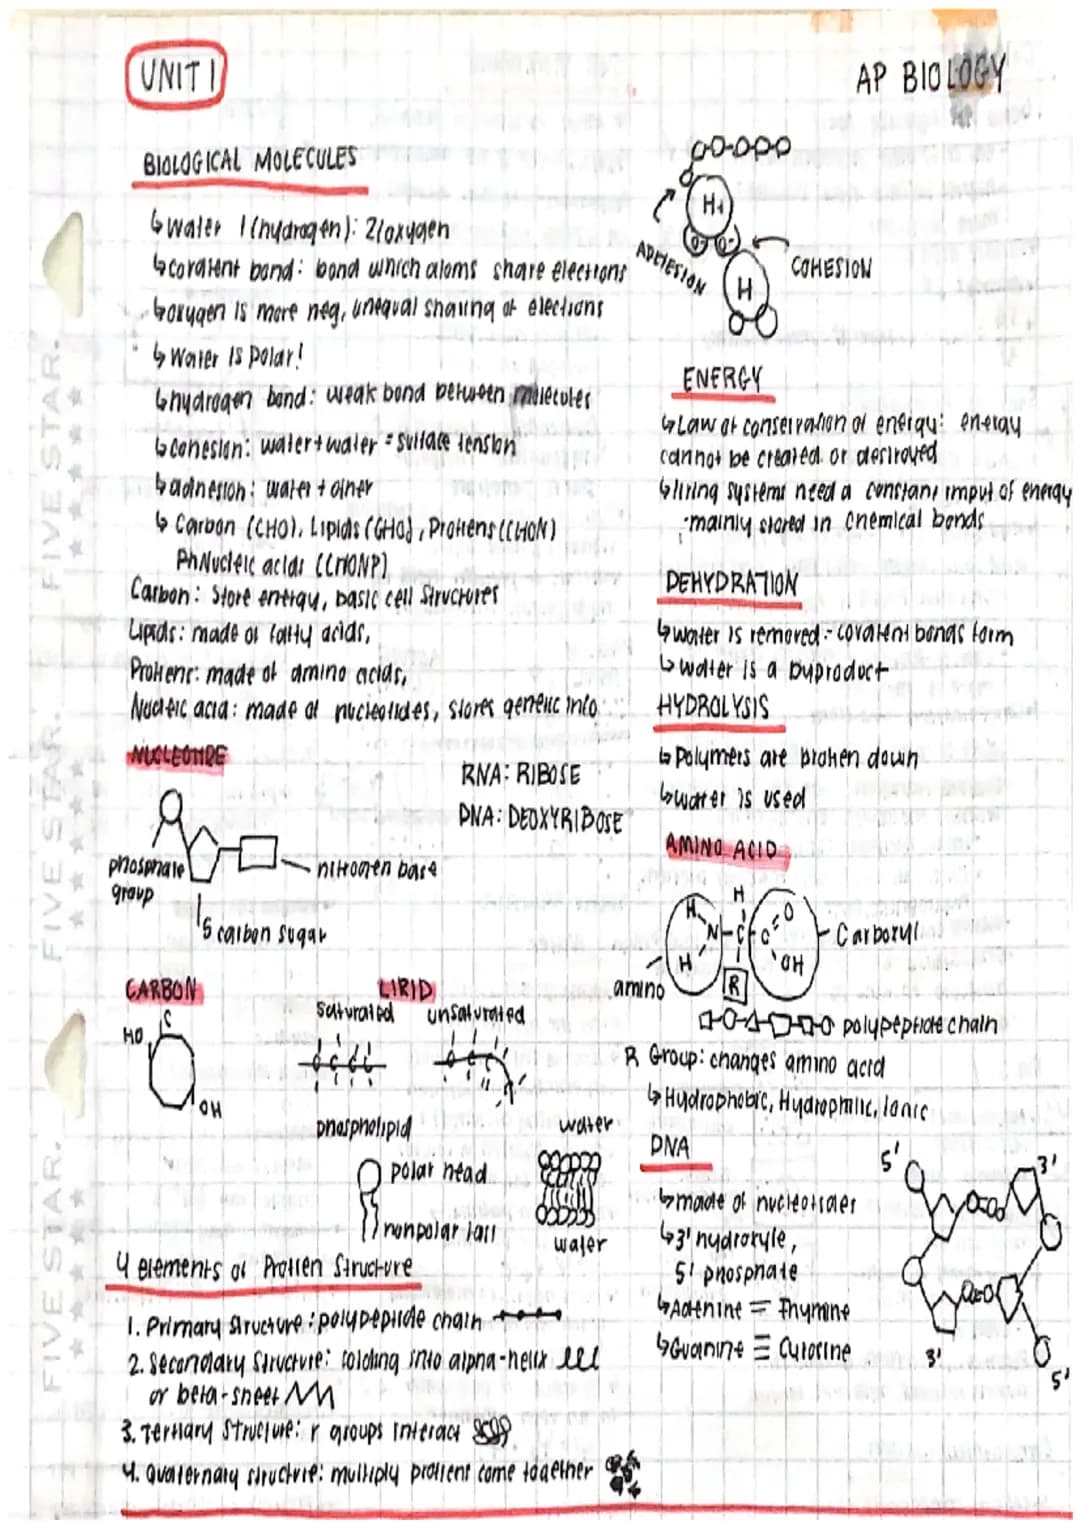 UNIT 1
AP BIOLOGY
BIOLOGICAL MOLECULES
↳ water 1(hydrogen): 2(oxygen
↳ covalent bond: bond which atoms share electrons
↳ oxygen is more neg, unequal sharing of elections
↳ Water is polar!
↳ hydrogen bond: weak bond between molecules
↳ cohesion: water + water = surface tension
↳ adhesion: water + other
↳ Carbon (CHO), Lipids (CHO), Protiens (CHON)
Nucleic acids (CHONP)
Carbon: Store energy, basic cell structures
Lipids: made of fatty acids,
Protiens: made of amino acids,
Nucleic acid: made of nucleotides, stores genetic info
NUCLEOTIDE
RNA: RIBOSE
DNA: DEOXYRIBOSE
phosphate
group
nitrogen base
5 carbon sugar
CARBON
C
HO
OH
LIPID
saturated unsaturated
phospholipid
polar head
nonpolar tail
water
water
4 elements of Protien Structure
1. Primary Structure: polypeptide chain
2. Secondary Structure: folding into alpha-helix
or beta-sheet
3. Tertiary Structure: r groups interact
4. Quaternary structure: multiply protiens come together
H+
O- O-
H
ADHESION
COHESION
ENERGY
↳ Law of conservation of energy: energy
cannot be created or destroyed
↳ living systems need a constant imput of energy
mainly stored in chemical bonds
DEHYDRATION
↳ water is removed - covalent bonds form
↳ water is a byproduct
HYDROLYSIS
↳ Polymers are broken down
↳ water is used
AMINO ACID
H
H N-C-C O
H R OH
amino
Carboxyl
polypeptide chain
R Group: changes amino acid
↳ Hydrophobic, Hydrophilic, Ionic
DNA
↳ made of nucleotides
↳ 3' hydroxyle,
5' phosphate
↳ Adenine = Thymine
↳ Guanine ≡ Cytosine
5' 3'
3' 5'
FIVE STAR.
FIVE STAR.
FIVE STAR.
FIVE STAR.